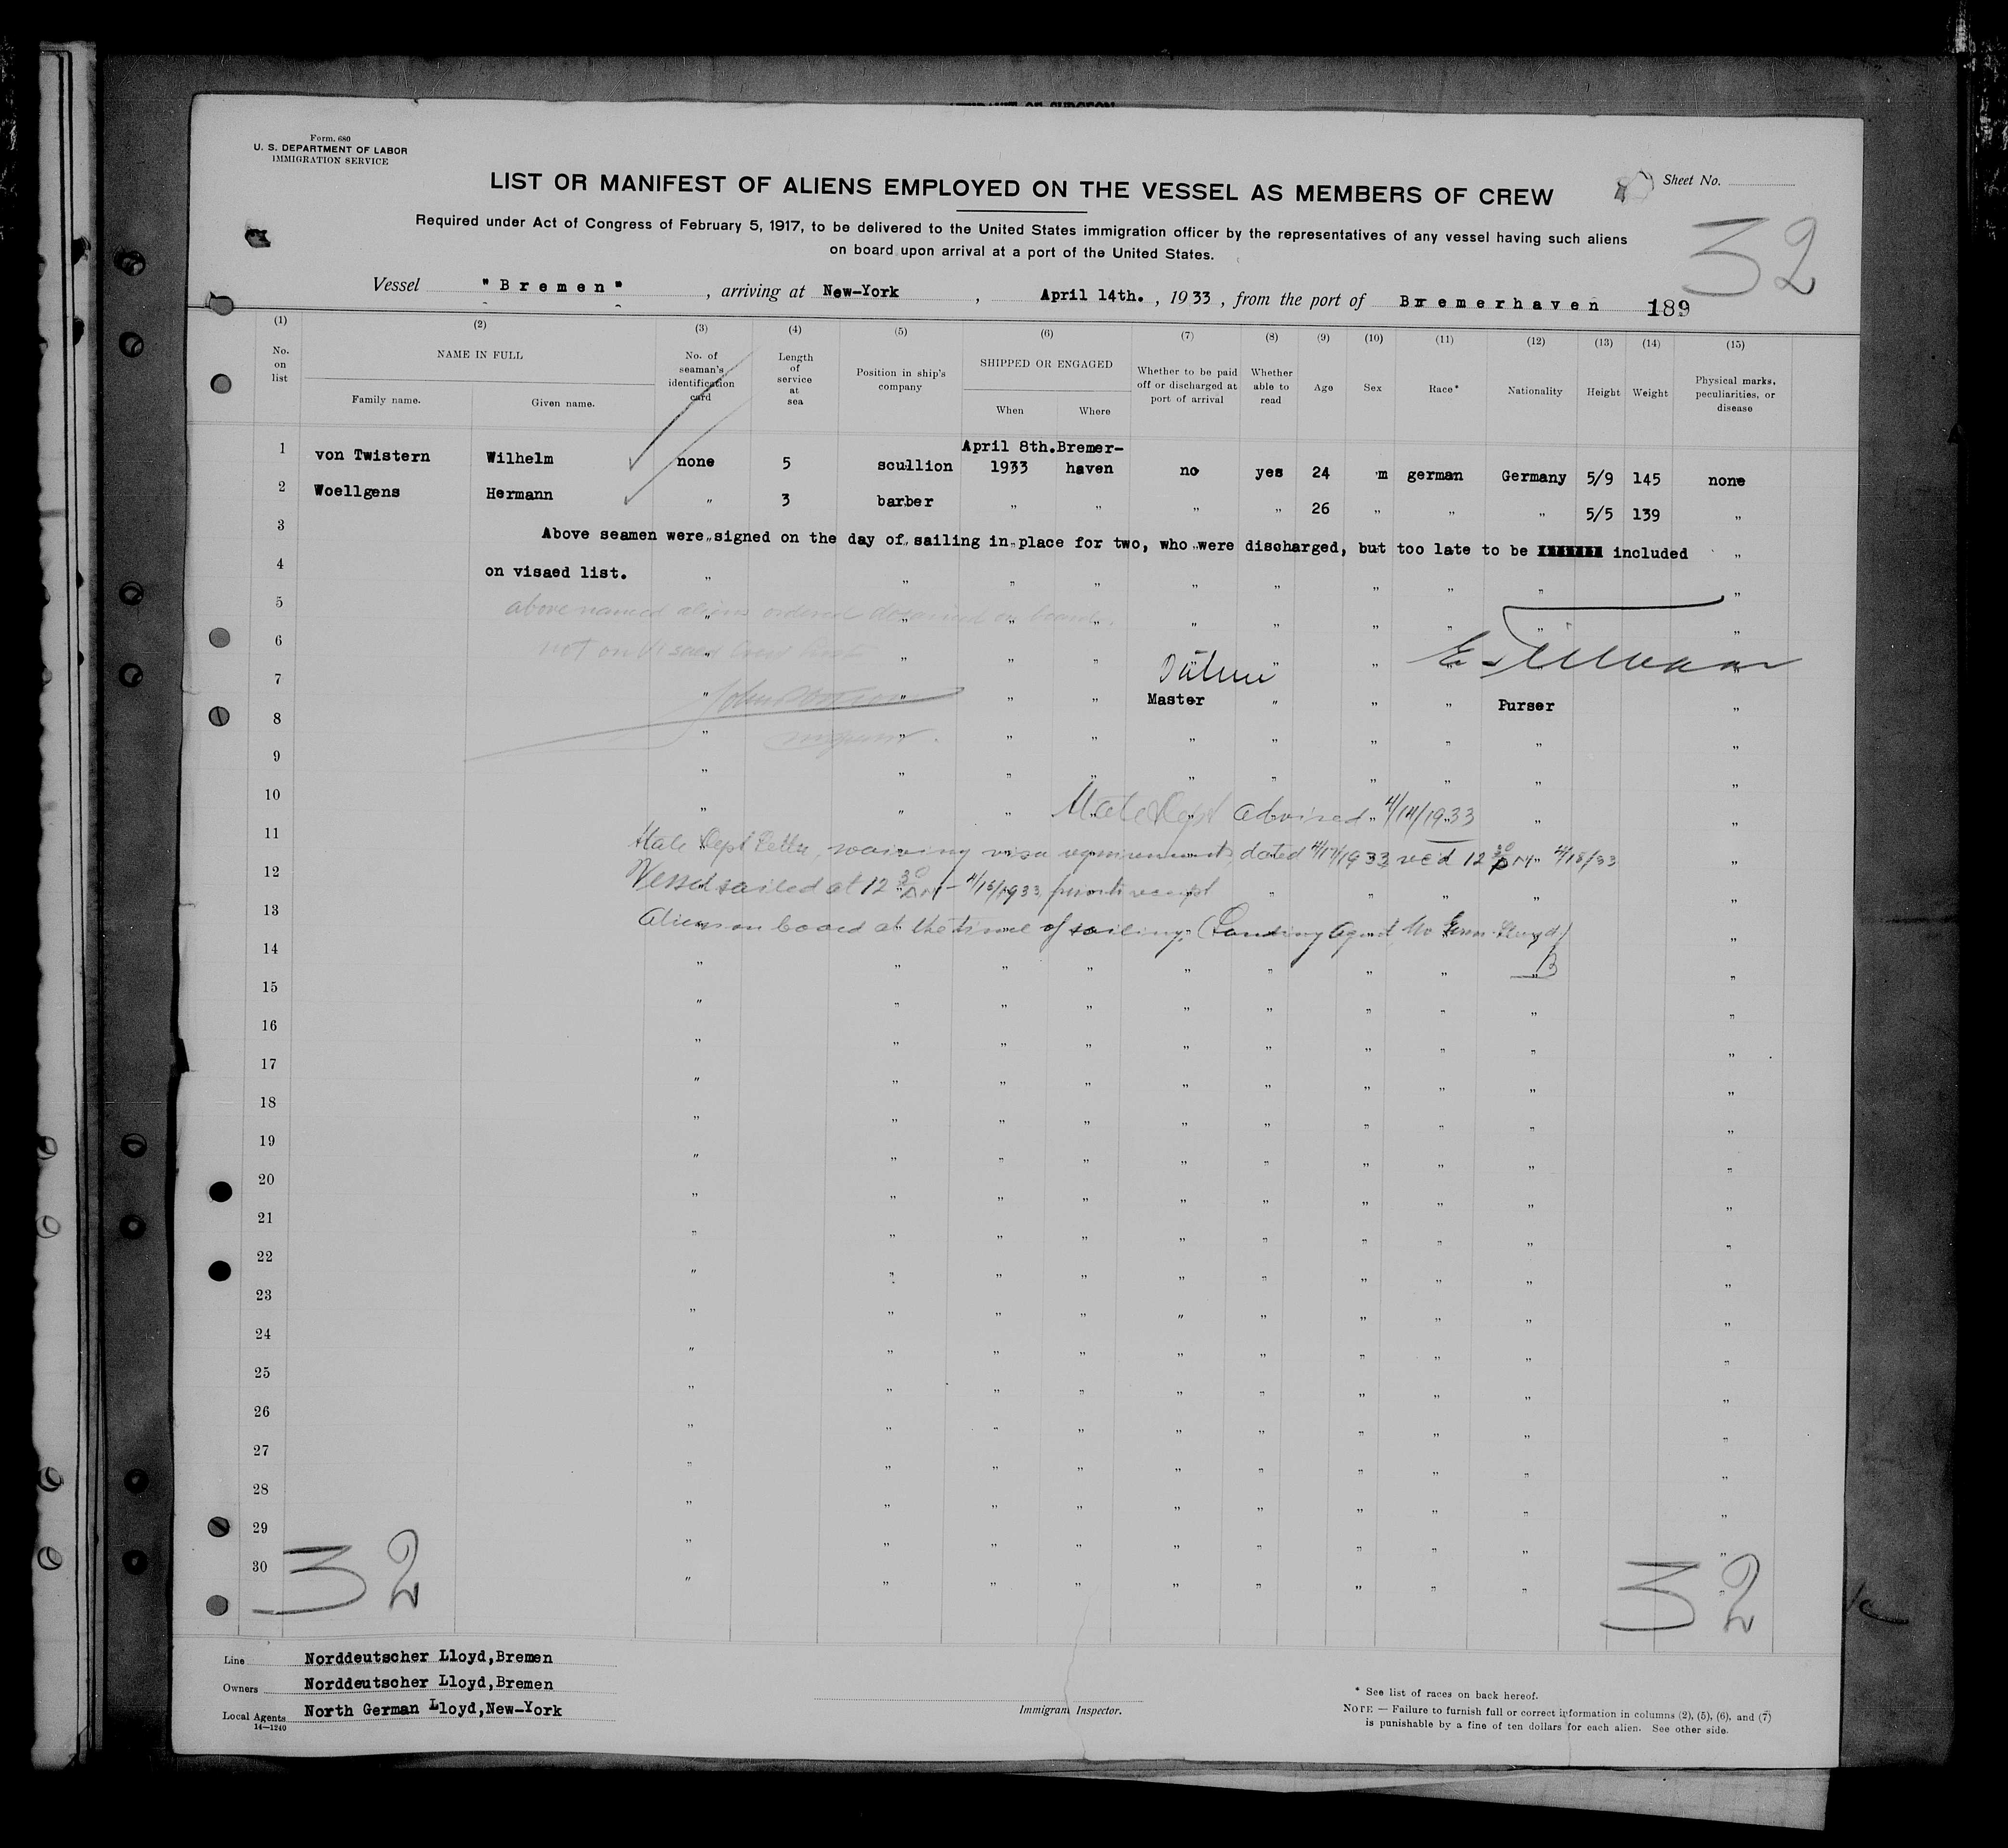 Form. 680
U. S. DEPARTMENT OF LABOR
IMMIGRATION SERVICE
LIST OR MANIFEST OF ALIENS EMPLOYED ON THE VESSEL AS MEMBERS OF CREW
Sheet No.
32
Required under Act of Congress of February 5, 1917, to be delivered to the United States immigration officer by the representatives of any vessel having such aliens
on board upon arrival at a port of the United States.
Vessel "Bremen", arriving at New-York, April 14th., 1933, from the port of Bremerhaven 189
(1) (2) (3) (4) (5) (6) (7) (8) (9) (10) (11) (12) (13) (14) (15)
No. on list NAME IN FULL Family name. Given name. No. of seaman's identification card Length of service at sea Position in ship's company SHIPPED OR ENGAGED When Where Whether to be paid off or discharged at port of arrival Whether able to read Age Sex Race* Nationality Height Weight Physical marks, peculiarities, or disease
April 8th. Bremer-
1 von Twistern Wilhelm none 5 scullion 1933 haven no yes 24 m german Germany 5/9 145 none
2 Woellgens Hermann " 3 barber " " " " 26 " " " 5/5 139 "
3 Above seamen were signed on the day of sailing in place for two, who were discharged, but too late to be included
4 on visaed list.
5 above named aliens ordered detained on board.
6 not on visaed crew list
7 Master Purser
8
9
10 State Dept advised 4/14/1933
11 State Dept letter, waiving visa requirements dated 4/17/1933 rec'd 12 30 PM 4/18/33
12 Vessel sailed at 12 30 AM - 4/15/1933 receipt
13 Aliens on board at the time of sailing. (Landing Agent No Germ. Lloyd)
14
15
16
17
18
19
20
21
22
23
24
25
26
27
28
29
30
32 32
Line Norddeutscher Lloyd,Bremen
Owners Norddeutscher Lloyd,Bremen
Local Agents North German Lloyd,New-York
14—1240
Immigrant Inspector.
* See list of races on back hereof.
NOTE — Failure to furnish full or correct information in columns (2), (5), (6), and (7)
is punishable by a fine of ten dollars for each alien. See other side.